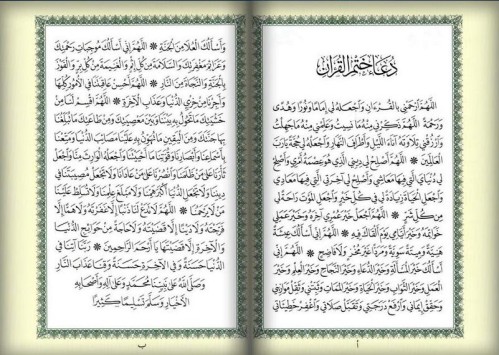 دُعَاءُ خَتْمِ الْقُرْآنِ
اللَّهُمَّ ارْحَمْنِي بِالْقُرْءَانِ وَاجْعَلْهُ لِي إِمَامًا وَنُورًا وَهُدًى
وَرَحْمَةً * اللَّهُمَّ ذَكِّرْنِي مِنْهُ مَا نَسِيتُ وَعَلِّمْنِي مِنْهُ مَا جَهِلْتُ
وَارْزُقْنِي تِلَاوَتَهُ آنَاءَ اللَّيْلِ وَأَطْرَافَ النَّهَارِ وَاجْعَلْهُ لِي حُجَّةً يَارَبَّ
الْعَالَمِينَ * اللَّهُمَّ أَصْلِحْ لِي دِينِي الَّذِي هُوَ عِصْمَةُ أَمْرِي وَأَصْلِحْ
لِي دُنْيَايَ الَّتِي فِيهَا مَعَاشِي وَأَصْلِحْ لِي آخِرَتِي الَّتِي فِيهَا مَعَادِي
وَاجْعَلِ الْحَيَاةَ زِيَادَةً لِي فِي كُلِّ خَيْرٍ وَاجْعَلِ الْمَوْتَ رَاحَةً لِي
مِنْ كُلِّ شَرٍّ * اللَّهُمَّ اجْعَلْ خَيْرَ عُمْرِي آخِرَهُ وَخَيْرَ عَمَلِي
خَوَاتِمَهُ وَخَيْرَ أَيَّامِي يَوْمَ أَلْقَاكَ فِيهِ * اللَّهُمَّ إِنِّي أَسْأَلُكَ عِيشَةً
هَنِيَّةً وَمِيتَةً سَوِيَّةً وَمَرَدًّا غَيْرَ مُخْزٍ وَلَا فَاضِحٍ * اللَّهُمَّ إِنِّي
أَسْأَلُكَ خَيْرَ الْمَسْأَلَةِ وَخَيْرَ الدُّعَاءِ وَخَيْرَ النَّجَاحِ وَخَيْرَ الْعِلْمِ وَخَيْرَ
الْعَمَلِ وَخَيْرَ الثَّوَابِ وَخَيْرَ الْحَيَاةِ وَخَيْرَ الْمَمَاتِ وَثَبِّتْنِي وَثَقِّلْ مَوَازِينِي
وَحَقِّقْ إِيمَانِي وَارْفَعْ دَرَجَتِي وَتَقَبَّلْ صَلَاتِي وَاغْفِرْ خَطِيئَاتِي
أ
وَأَسْأَلُكَ الْعُلَا مِنَ الْجَنَّةِ * اللَّهُمَّ إِنِّي أَسْأَلُكَ مُوجِبَاتِ رَحْمَتِكَ
وَعَزَائِمَ مَغْفِرَتِكَ وَالسَّلَامَةَ مِنْ كُلِّ إِثْمٍ وَالْغَنِيمَةَ مِنْ كُلِّ بِرٍّ وَالْفَوْزَ
بِالْجَنَّةِ وَالنَّجَاةَ مِنَ النَّارِ * اللَّهُمَّ أَحْسِنْ عَاقِبَتَنَا فِي الْأُمُورِ كُلِّهَا
وَأَجِرْنَا مِنْ خِزْيِ الدُّنْيَا وَعَذَابِ الْآخِرَةِ * اللَّهُمَّ اقْسِمْ لَنَا مِنْ
خَشْيَتِكَ مَا تَحُولُ بِهِ بَيْنَنَا وَبَيْنَ مَعْصِيَتِكَ وَمِنْ طَاعَتِكَ مَا تُبَلِّغُنَا
بِهَا جَنَّتَكَ وَمِنَ الْيَقِينِ مَا تُهَوِّنُ بِهِ عَلَيْنَا مَصَائِبَ الدُّنْيَا وَمَتِّعْنَا
بِأَسْمَاعِنَا وَأَبْصَارِنَا وَقُوَّتِنَا مَا أَحْيَيْتَنَا وَاجْعَلْهُ الْوَارِثَ مِنَّا وَاجْعَلْ
ثَأْرَنَا عَلَى مَنْ ظَلَمَنَا وَانْصُرْنَا عَلَى مَنْ عَادَانَا وَلَا تَجْعَلْ مُصِيبَتَنَا فِي
دِينِنَا وَلَا تَجْعَلِ الدُّنْيَا أَكْبَرَ هَمِّنَا وَلَا مَبْلَغَ عِلْمِنَا وَلَا تُسَلِّطْ عَلَيْنَا
مَنْ لَا يَرْحَمُنَا * اللَّهُمَّ لَا تَدَعْ لَنَا ذَنْبًا إِلَّا غَفَرْتَهُ وَلَا هَمًّا إِلَّا
فَرَّجْتَهُ وَلَا دَيْنًا إِلَّا قَضَيْتَهُ وَلَا حَاجَةً مِنْ حَوَائِجِ الدُّنْيَا
وَالْآخِرَةِ إِلَّا قَضَيْتَهَا يَا أَرْحَمَ الرَّاحِمِينَ * رَبَّنَا آتِنَا فِي
الدُّنْيَا حَسَنَةً وَفِي الْآخِرَةِ حَسَنَةً وَقِنَا عَذَابَ النَّارِ
وَصَلَّى اللهُ عَلَى نَبِيِّنَا مُحَمَّدٍ وَعَلَى آلِهِ وَأَصْحَابِهِ
الْأَخْيَارِ وَسَلَّمَ تَسْلِيمًا كَثِيرًا
ب